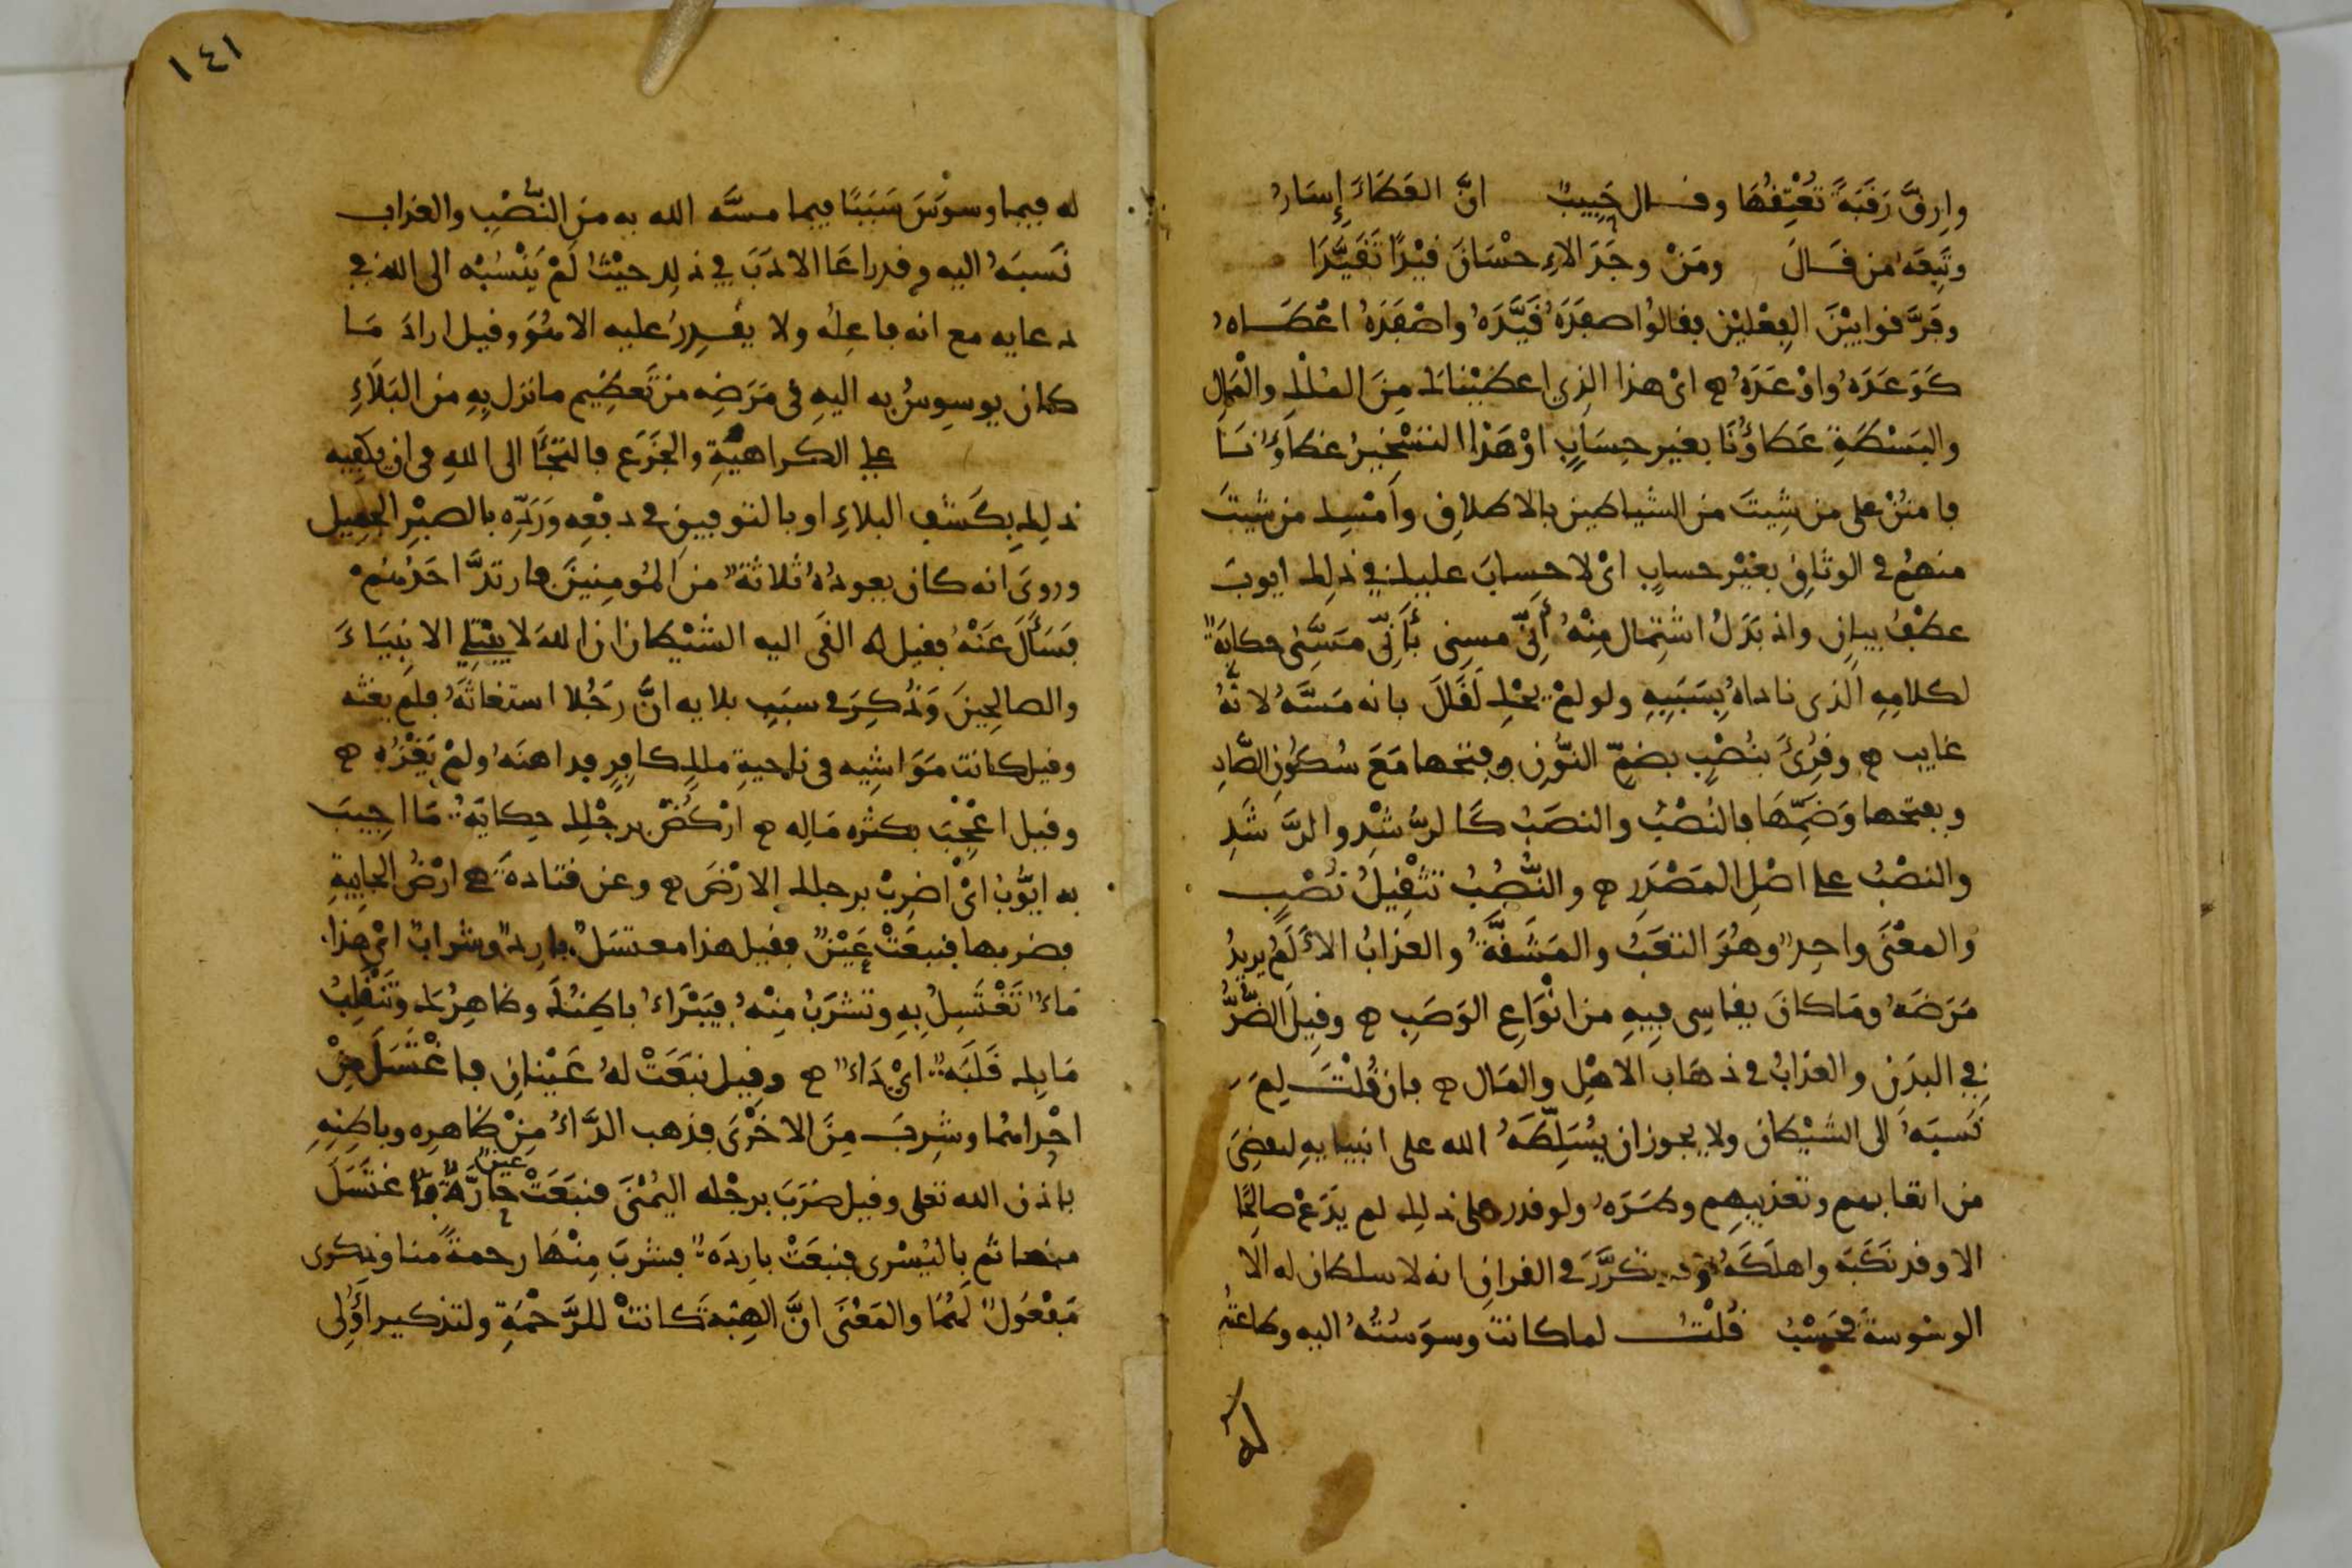 وارقّ رَقَبَةً تُعْتِقُهَا وقال حَبِيبٌ انّ العَطَاءَ إِسَارُ
وتَبِعَهُ من قَالَ ومَنْ وجَدَ الاِحْسَانَ قَيْدًا تَقَيَّدَا
وفَرَّقوا بَيْنَ الفِعْلَيْن فقالوُا صفَدَهُ قَيَّدَهُ واصْفَدَهُ اعْطَاهُ
كَوَعَدَهُ واوْعَدَهُ ه اىْ هذا الذي اعطَيْنَاك مِنَ المُلْكِ والْمَالِ
والبَسْطَةِ عَطَاؤُنَا بغير حِسَابٍ اوْ هَذَا التسْخيرُ عَطَاؤُنَا
فامنُنْ على من شِيتَ من الشياطين بالاطلاق وامْسِك من شيتَ
منهمُ في الوثَاقِ بغَيْر حسابٍ اىْ لا حسابَ عليك في ذلك ايوبَ
عطْفُ بيانٍ واذ بَدَلُ اشتِمال مِنْهُ أَنِّى مسنِى بأَنِّى مَسَّنِى حكايَةً
لكلامِهِ الذى ناداهُ بسَبَبِهِ ولو لمْ يحْكِ لَقَالَ بانه مَسَّهُ لانهُ
غايب ه وقُرِئَ بنُصْبٍ بضمّ النُّونِ وفتحها مَعَ سُكُونِ الصَّادِ
وبفتحها وَضَمِّهَا فالنُصْبُ والنصَبُ كَالرُّشْدِ والرَّشَدِ
والنصْبُ على اصْلِ المَصْدَرِ ه والنُّصُبُ تثْقِيلُ نُصْبٍ
والمعْنَى واحِد وهُوَ التعَبُ والمَشَقَّةُ والعذابُ الاَلَمُ يريدُ
مَرَضَهُ ومَا كانَ يقاسِى فِيهِ من انْوَاعِ الوَصَبِ ه وقِيلَ الضُّرُّ
في البدَنِ والعذابُ في ذهَاب الاهْلِ والمَال ه فان قُلْتَ لِمَ
نَسبَهُ الى الشيْطان ولا يجوز ان يسُلِّطَهُ الله على انبيايهِ ليقضِىَ
من اتعابهم وتعذيبهم وطَرَهُ ولو قدر على ذلك لم يَدَعْ صالحًا
الا وقد نكَبَهُ واهلَكَهُ وقد تكَرَّرَ في القرانِ انه لا سلطان له الا
الوسْوسَةَ فحَسْبُ قُلْتُ لما كانت وسوَستُهُ اليه وطاعتُه
له
١٤١
له فيما وسوَسَ سَبَبًا فيما مسَّه الله به من النُّصْبِ والعذاب
نَسبَهُ اليه وقد راعَا الادَبَ في ذلك حيْثُ لَمْ يَنْسُبْه الى الله في
دعايه مع انه فاعِلهُ ولا يقْدِرُ عليه الا هُوَ وقيل ارادَ مَا
كان يوسوِسُ به اليهِ في مَرَضِه من تَعظيم ما نزل بِهِ من البَلَاءِ
على الكراهيّةِ والجَزَع فالتجَأَ الى اللهِ في ان يكفِيه
ذلِك بكَشْفِ البلاءِ او بالتوفيقِ في دفْعِه ورَدِّه بالصبْرِ الجميل
وروىَ انه كان يعودُهُ ثلاثةٌ من المُومنِينَ فارتدَّ احَدُهُمْ
فَسَأَلَ عَنْهُ فقيل له القَى اليه الشيْطان ان اللهَ لا يبْتَلِي الانبياءَ
والصالحينَ وَذُكِرَ في سبَبِ بلايه انَّ رَجُلا استغاثَهُ فلم يغثه
وقيل كانت مَوَاشِيه في ناحيةِ ملكٍ كافرٍ فداهنَهُ ولمْ يَغْزُه ه
وقيل اعْجِبَ بكثره مَالِه ه ارْكُضْ برجْلِكَ حِكايَةُ مَا اجِيبَ
به ايُّوبُ اىْ اضْرِبْ برجلك الارْضَ ه وعن قتادةَ هى ارْضُ الجابيةِ
فضربها فنبعَتْ عَيْنٌ فقيل هذا مغتسَلٌ باردٌ وشرابٌ اىْ هذا
مَاءٌ تَغْتَسِلُ بِهِ وتشْرَبُ مِنْهُ فيَبْرَاءُ باطِنُكَ وظاهِرُك وتَنْقَلِبُ
مَا بك قَلَبَةٌ اىْ دَاءٌ ه وقيل نبَعَتْ لهُ عَيْنانِ فاغْتَسَلَ مِنْ
احْدَاهُما وشرِبَ مِنَ الاخْرَى فذهب الدَّاءُ مِنْ ظاهرِه وباطِنِهِ
باذن الله تعلى وقيل ضرَبَ برجْله اليُمْنَى فنبَعَتْ عين حَارَّةٌ فاغتسَلَ
منها ثم باليُسْرى فنبعَتْ بارِدَةٌ فشربَ مِنْهَا رحمةً منا وذكرى
مَفْعُولٌ لَهُمَا والمَعْنَى انَّ الهِبَةَ كانتْ للرَّحْمَةِ ولتذكير اؤلى